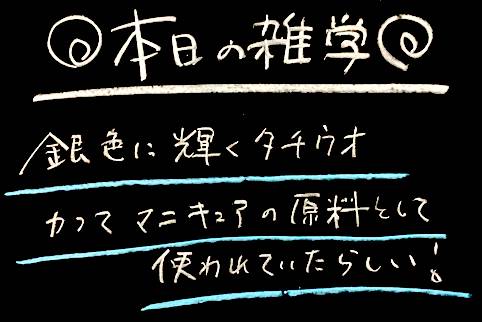 本日の雑学
銀色に輝くタチウオ
かつてマニキュアの原料として
使われていたらしい!